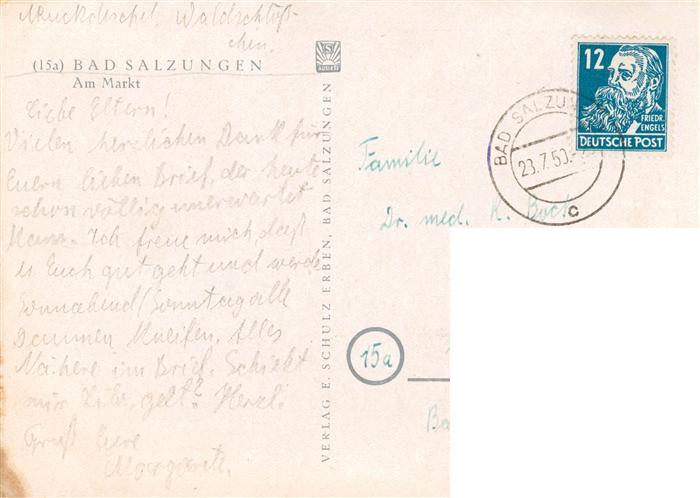 Waldschlöß-
chen.
(15a) BAD SALZUNGEN
Am Markt
Liebe Eltern!
Vielen herzlichen Dank für
Euern lieben Brief, der heute
schon völlig unerwartet
kam. Ich freue mich, daß
es Euch gut geht und werde
Sonnabend/Sonntag alle
Daumen kneifen. Alles
Nähere im Brief. Schickt
mir gelt? Herzl.
Gruß Eure
Margarete.
VERLAG E. SCHULZ ERBEN, BAD SALZUNGEN
12
FRIEDR.
ENGELS
DEUTSCHE POST
BAD SALZUN
23.7.50.
c
Familie
Dr. med. K. Bock
15a
Ba